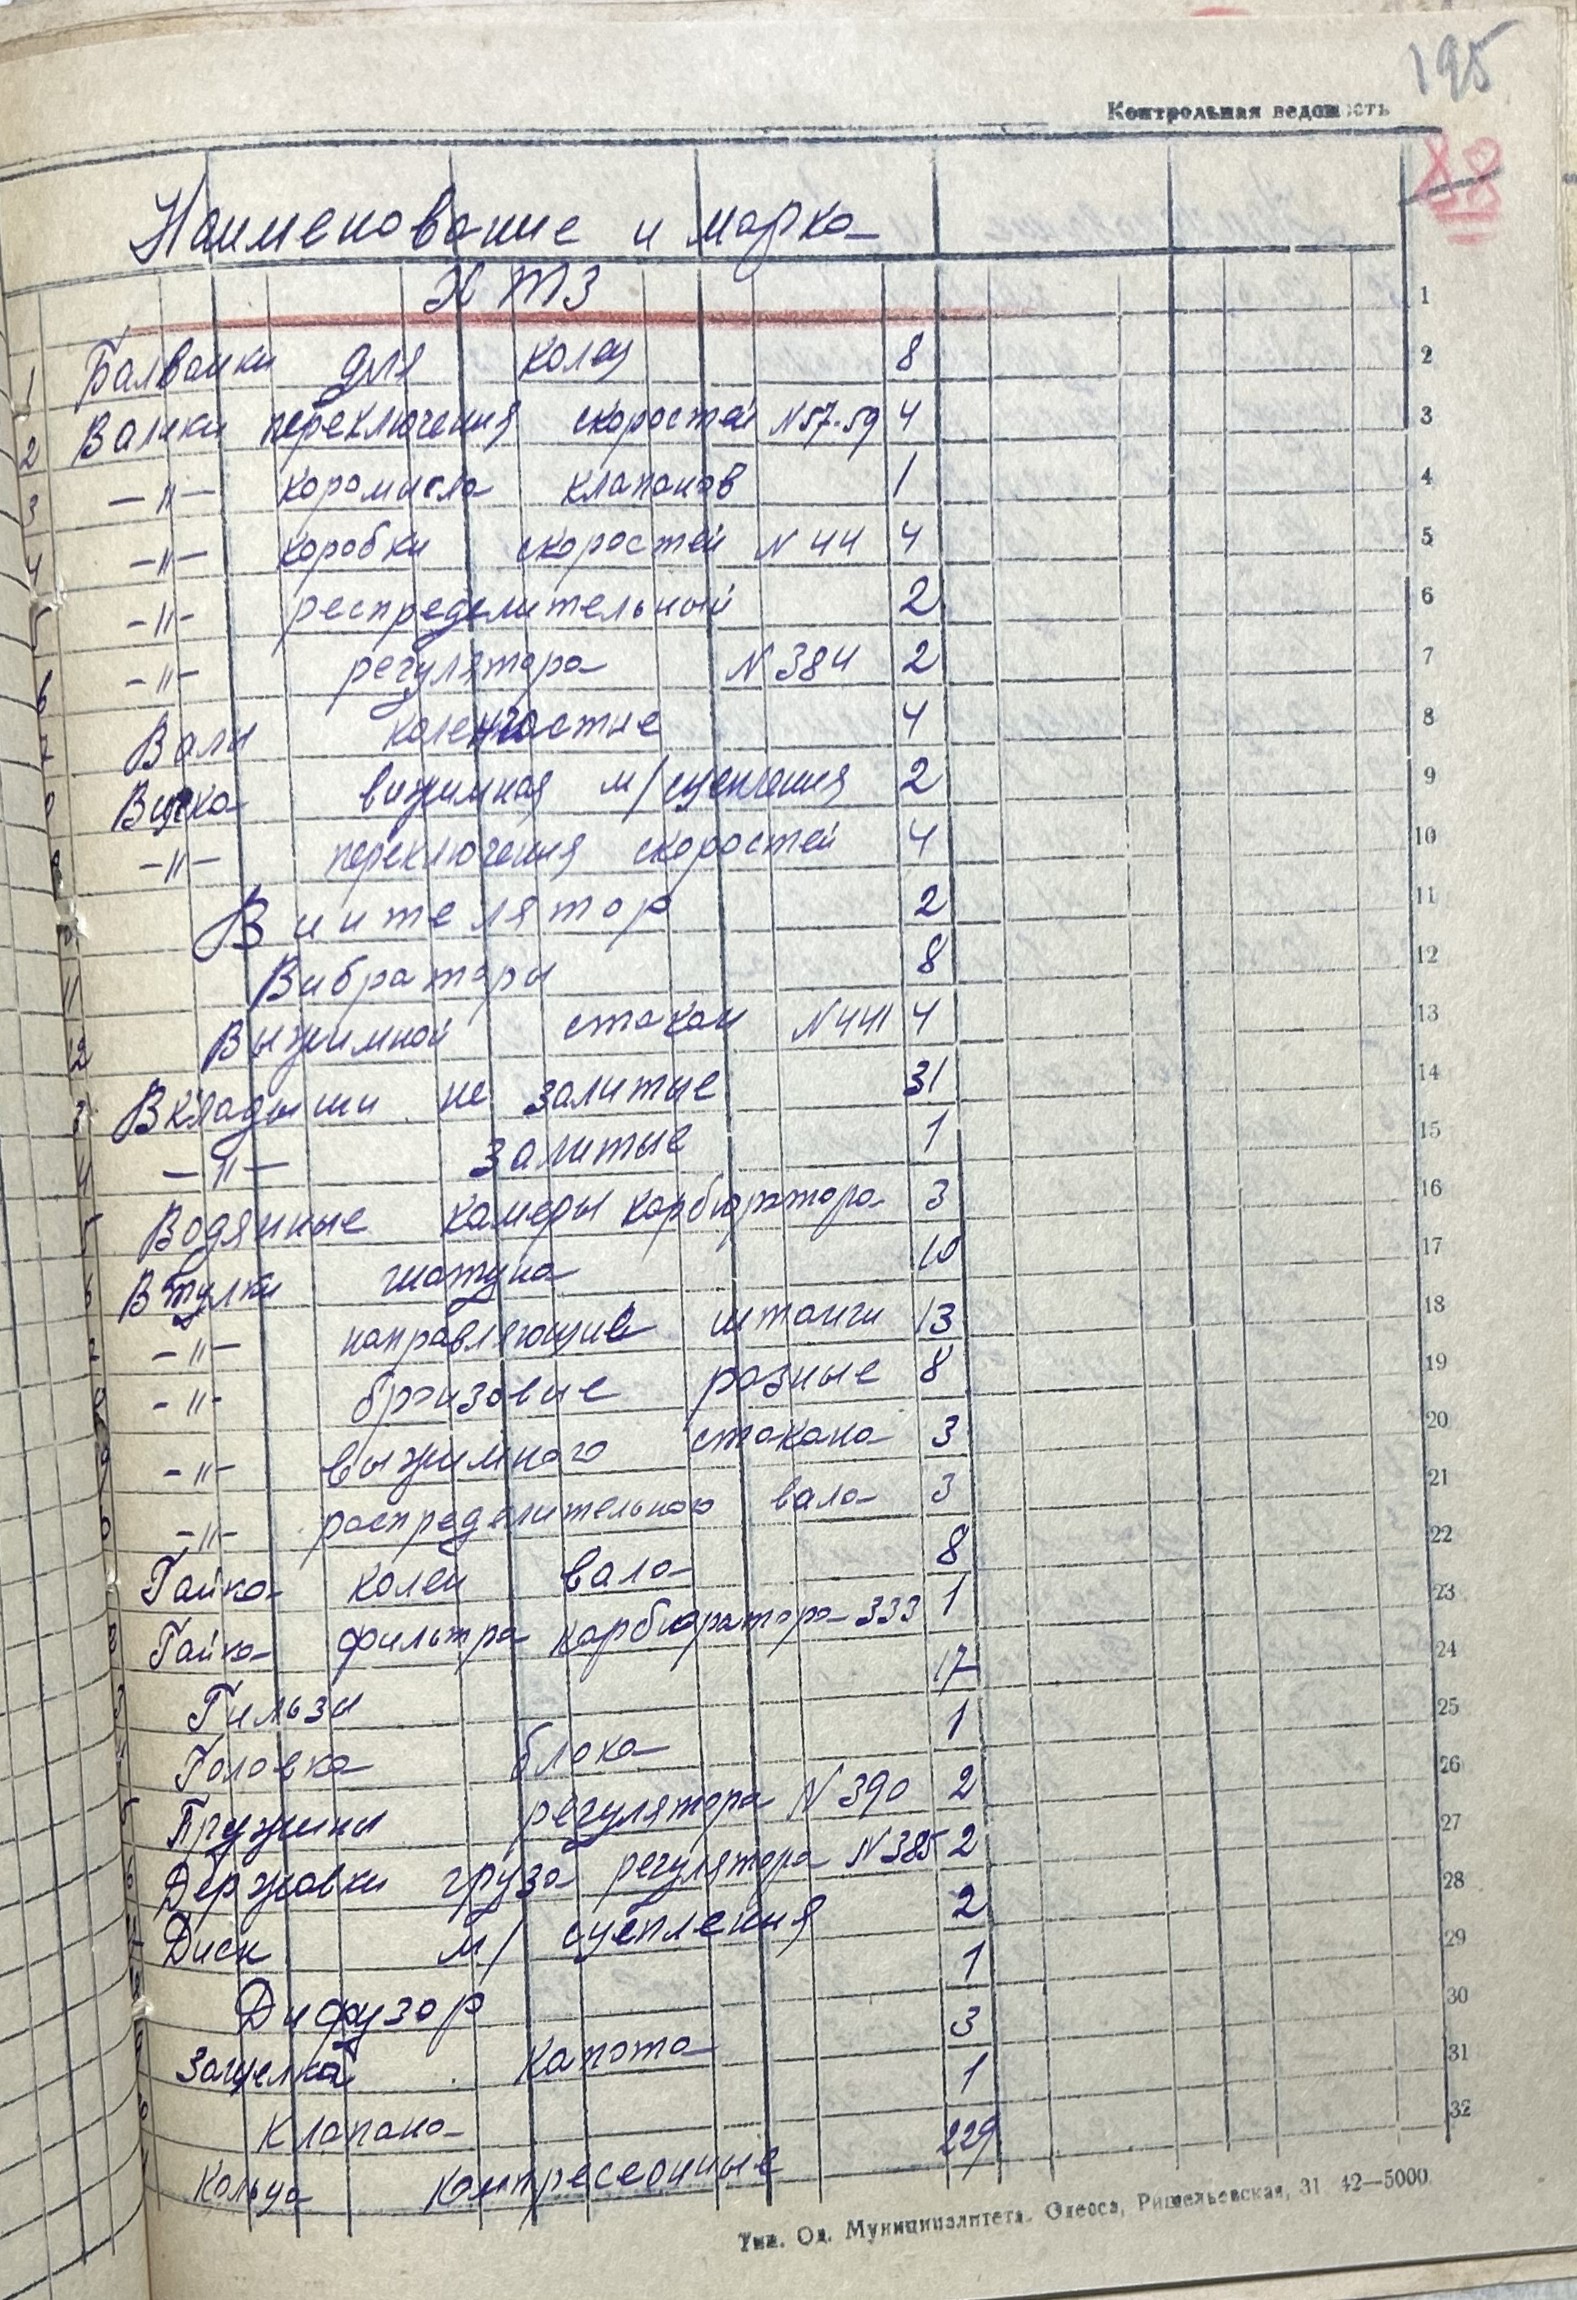 195
Контрольная ведомость
88
Наименование и марка
ХТЗ
1 Балванки для колец 8
2 Валики переключения скоростей N57-59 4
3 -"- коромисла клапанов 1
4 -"- коробки скоростей N 44 4
5 -"- респределительный 2
6 -"- регулятора N 384 2
7 Вали коленчастие 4
Вилка вижимная м/сцепления 2
-"- переключения скоростей 4
Вintелятор 2
11 Вибратори 8
12 Выжимной стакан N 441 4
3 Вкладыши не залитые 31
4 -"- залитые 1
5 Водянные камеры карбюратора 3
6 Втулки шатуна 10
-"- направляющие штанги 13
-"- бронзовие разные 8
-"- выжимного стакана 3
0 -"- распределительного вала 3
Гайка колен вала 8
Гайка фильтра карбюратора 333 1
3 Гильзи 17
Головка блока 1
5 Пружини регулятора N 390 2
6 Держовки груза регулятора N 385 2
Диск м/ сцепления 2
Дифузор 1
Защелка капота 3
Клапана 1
Кольца компрессонные 229
1
2
3
4
5
6
7
8
9
10
11
12
13
14
15
16
17
18
19
20
21
22
23
24
25
26
27
28
29
30
31
32
Тип. Од. Муниципалитета. Одесса, Ришельевская, 31 42—5000